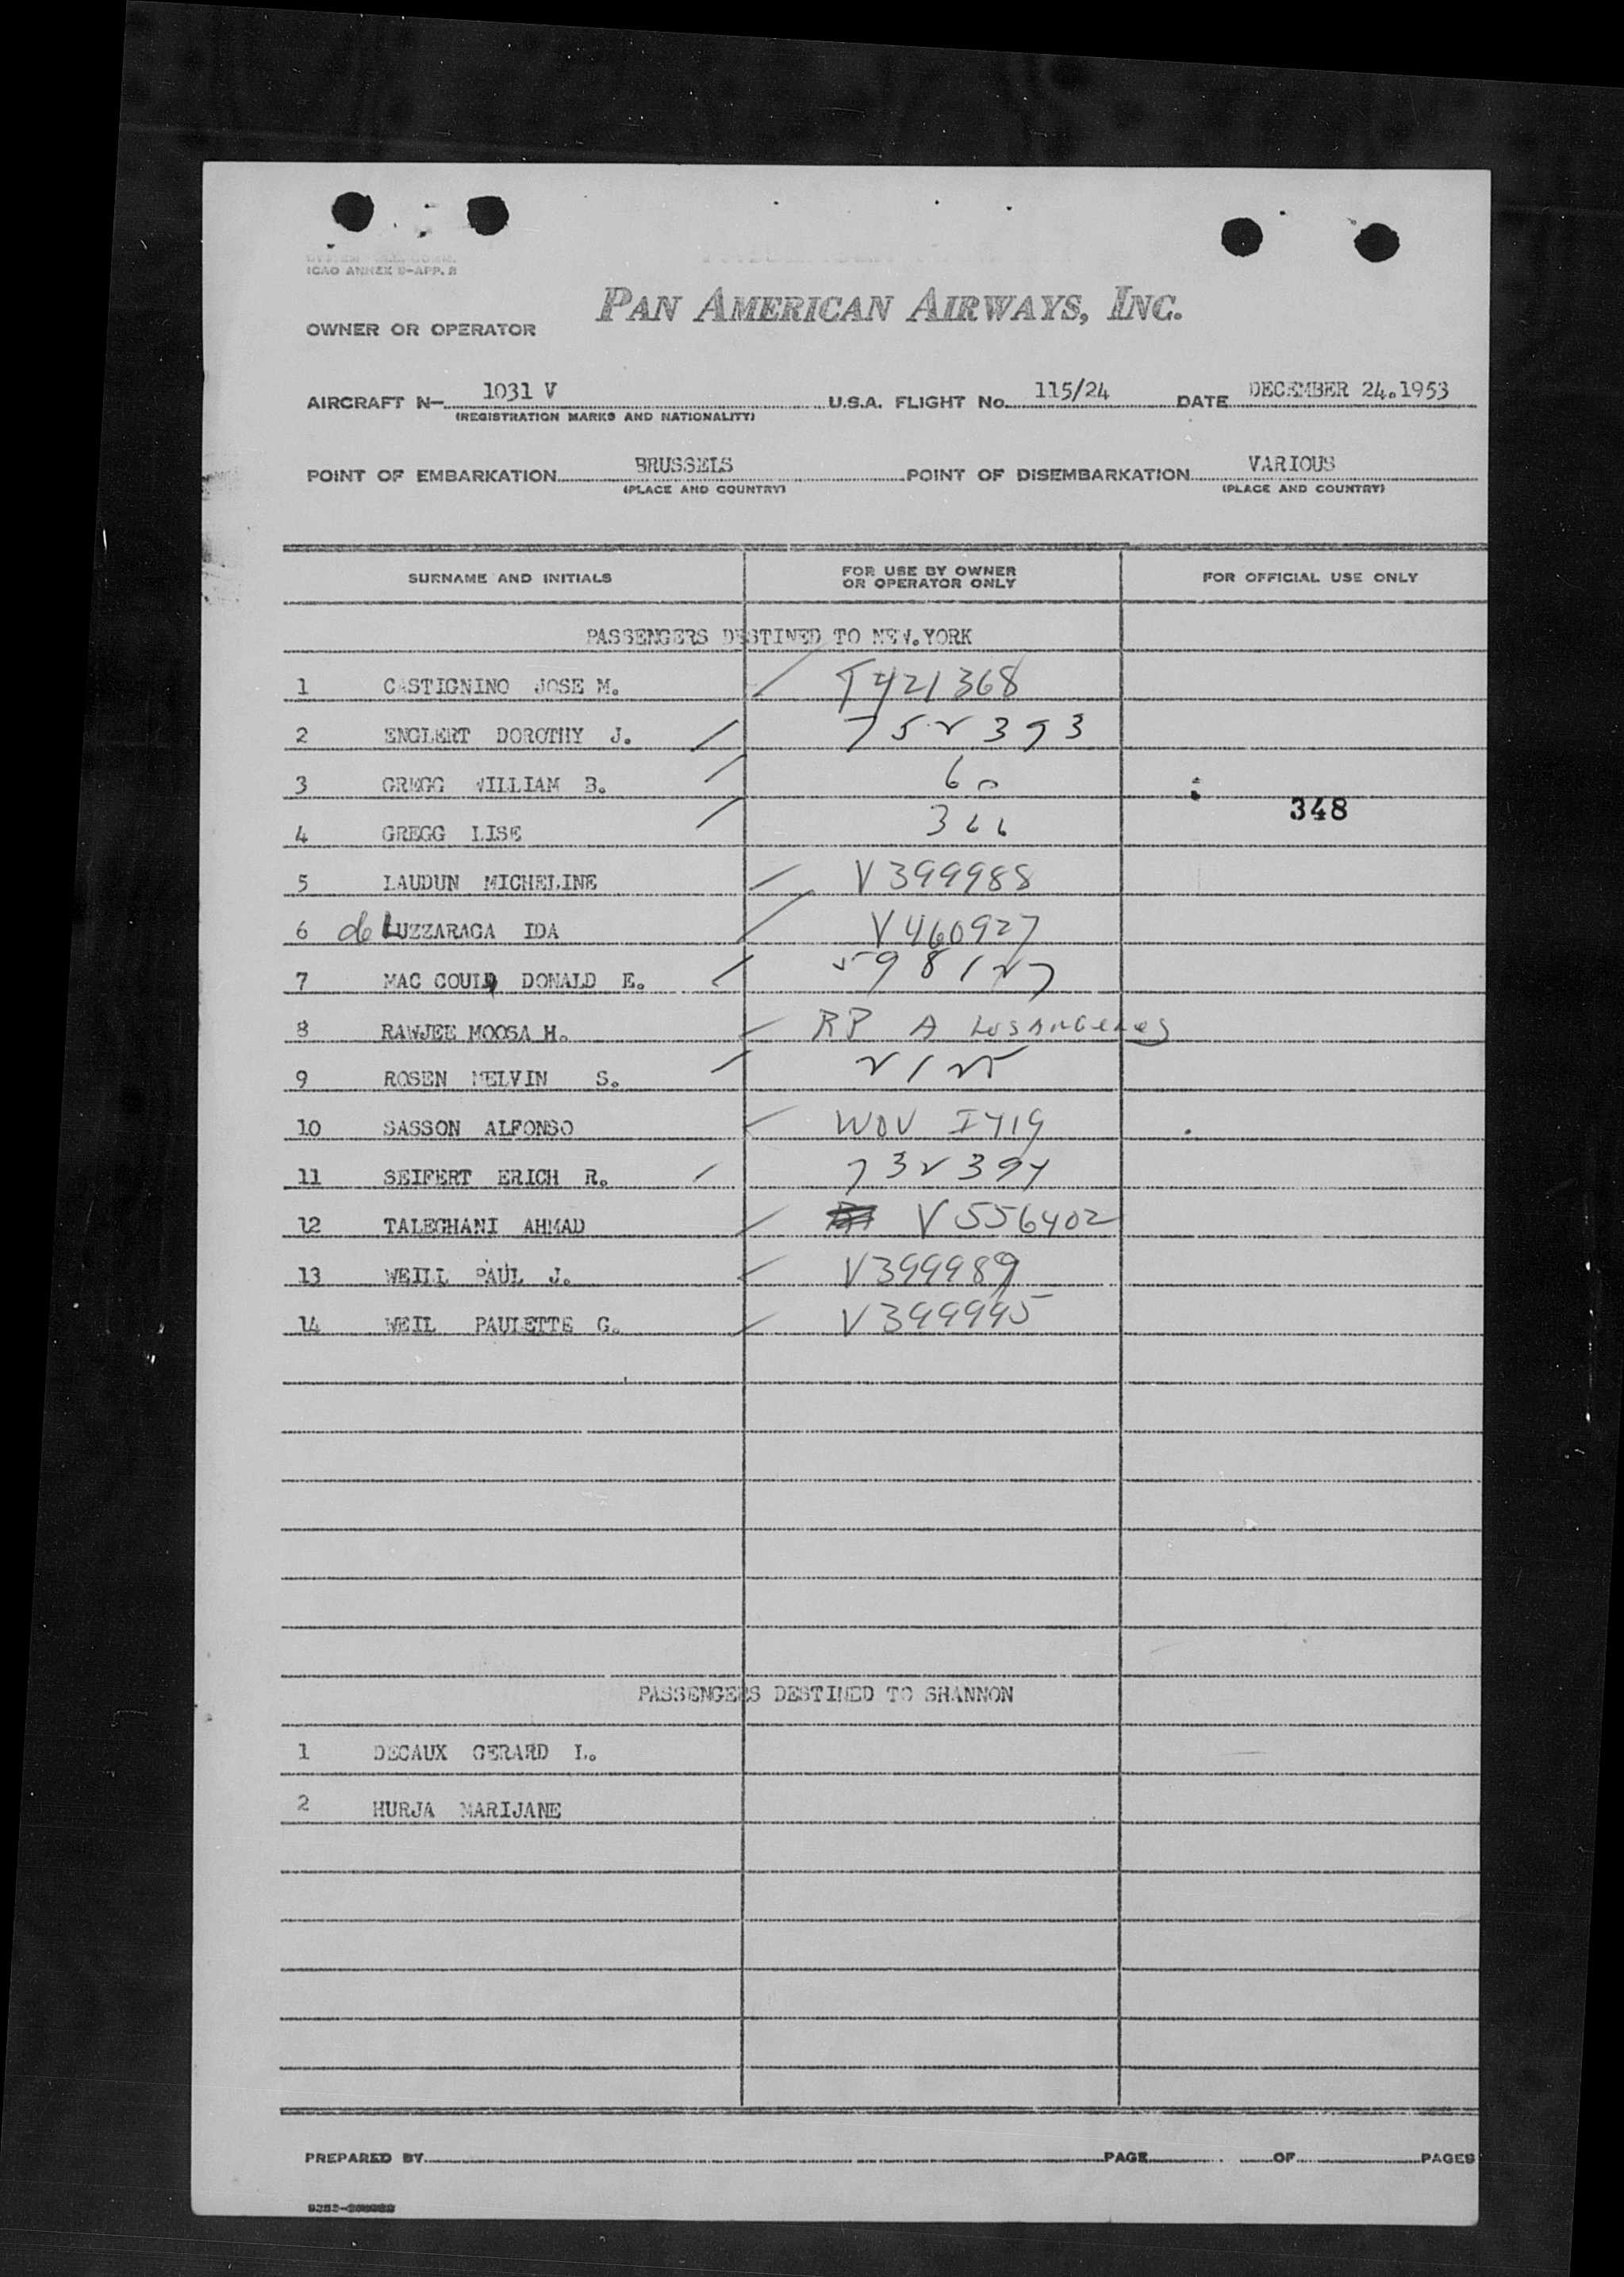 ICAO ANNEX 9-APP. B
PAN AMERICAN AIRWAYS, INC.
OWNER OR OPERATOR
AIRCRAFT N- 1031 V U.S.A. FLIGHT No. 115/24 DATE DECEMBER 24.1953
(REGISTRATION MARKS AND NATIONALITY)
POINT OF EMBARKATION BRUSSELS POINT OF DISEMBARKATION VARIOUS
(PLACE AND COUNTRY) (PLACE AND COUNTRY)
SURNAME AND INITIALS FOR USE BY OWNER OR OPERATOR ONLY FOR OFFICIAL USE ONLY
PASSENGERS DESTINED TO NEW.YORK
1 CASTIGNINO JOSE M. T421368
2 ENGLERT DOROTHY J. 752393
3 GREGG WILLIAM B. 60
348
4 GREGG LISE 366
5 LAUDUN MICHELINE V399988
6 de LUZZARAGA IDA V460927
7 MAC GOULD DONALD E. 598127
8 RAWJEE MOOSA H. RP A LosAngeles
9 ROSEN MELVIN S. 2125
10 SASSON ALFONSO WOV I419
11 SEIFERT ERICH R. 732394
12 TALEGHANI AHMAD V556402
13 WEILL PAUL J. V399989
14 WEIL PAULETTE G. V399995
PASSENGERS DESTINED TO SHANNON
1 DECAUX GERARD L.
2 HURJA MARIJANE
PREPARED BY PAGE OF PAGES